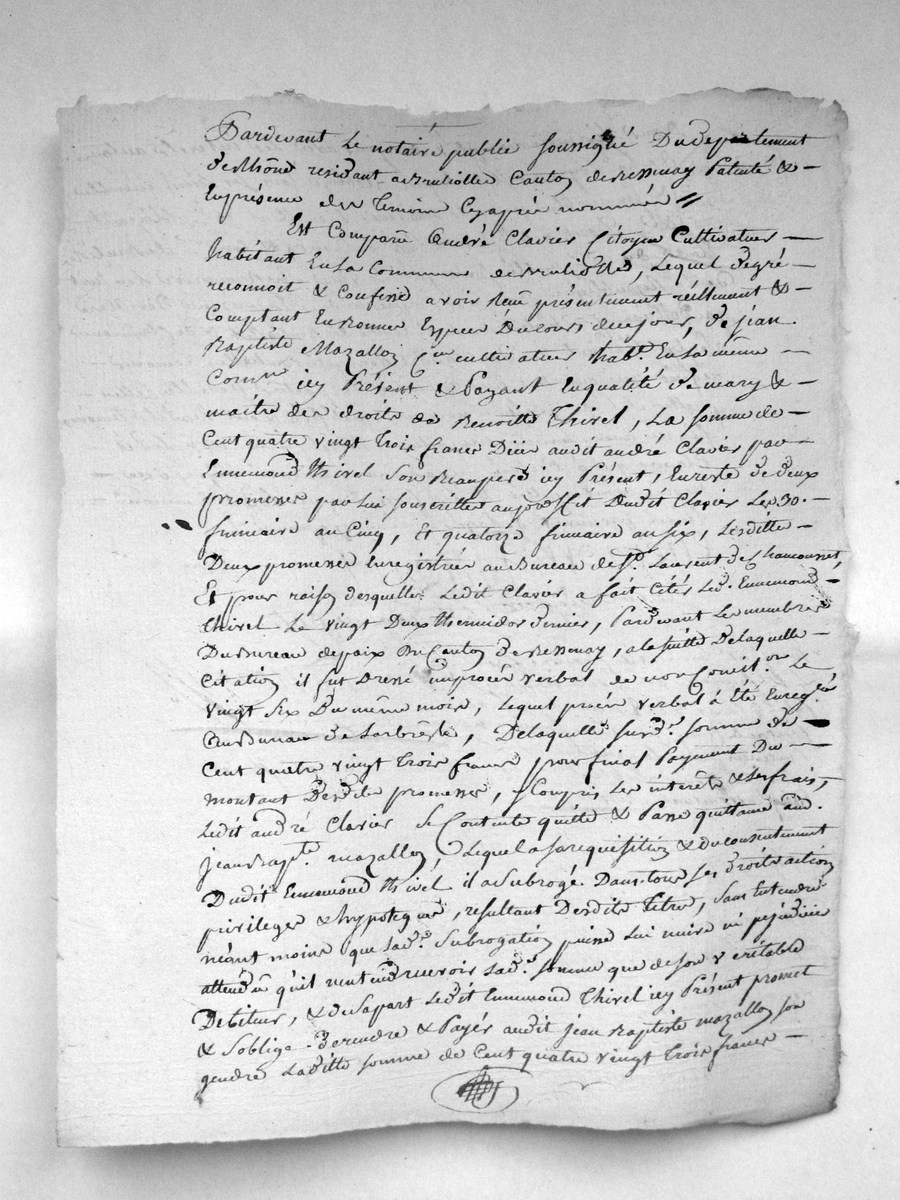 Pardevant Le notaire public soussigné Du departement
de Rhône residant a Brulliolle Canton de Bessenay Patenté &
En présence des Temoins Cyaprés nommés //
Est Comparu André Clavier Citoyen Cultivateur
habitant En La Commune de Brulliolle, Lequel de gré
reconnoit & Confesse avoir Reçu présentement réellement &
Comptant En Bonnes Especes Du Cours de ce jour, de jean
Baptiste Mazallon C.en cultivateur hab.t En La même
Comm.ne icy Présent & Payant En qualité de mary &
maitre des droits de Benoitte Thivel, La somme de
Cent quatre vingt Trois francs Düe audit andré Clavier par
Ennemond Thivel Son Beaupere icy Présent, En reste de deux
promesses par Lui souscrittes au proffit Dudit Clavier Les 30.
frimaire an Cinq, Et quatorze frimaire an six, Lesditte
Deux promesses Enregistrées au Bureau de S.t Laurent de Chamousset,
Et pour raison desquelles Ledit Clavier a fait Citer Led. Ennemond
Thivel Le vingt Deux thermidor dernier, Pardevant Les membres
Du Bureau de paix Du Canton de Bessenay, a la suitte De laquelle
Citation il fut Dressé un procés verbal de non Concil.on Le
vingt Six Du même mois, Lequel procés verbal à Eté Enreg.ré
au Bureau de Larbresle, De laquelle sus.d. somme de
Cent quatre vingt Trois francs pour final Payment Du
montant Desdits promesses, y Compris Les interêts & Les frais,
Ledit andré Clavier Se Contente quitte & Passe quittance aud.
jean Bapt.e mazallon, Lequel a sa requisition & du consentement
Dudit Ennemond Thivel il a Subrogé Dans tous Ses droits action
privileges & hypoteques, resultant Desdits Titres, Sans Entendre
néant moins que Lad.e Subrogation puisse Lui nuire ni préjudicier
attendu qu'il recevoir Lad.e somme que de son veritable
Debiteur, & de Sa part Ledit Ennemond Thivel icy Présent promet
& S'oblige de rendre & Payer audit jean Baptiste mazallon son
gendre Laditte somme de Cent quatre vingt Trois francs